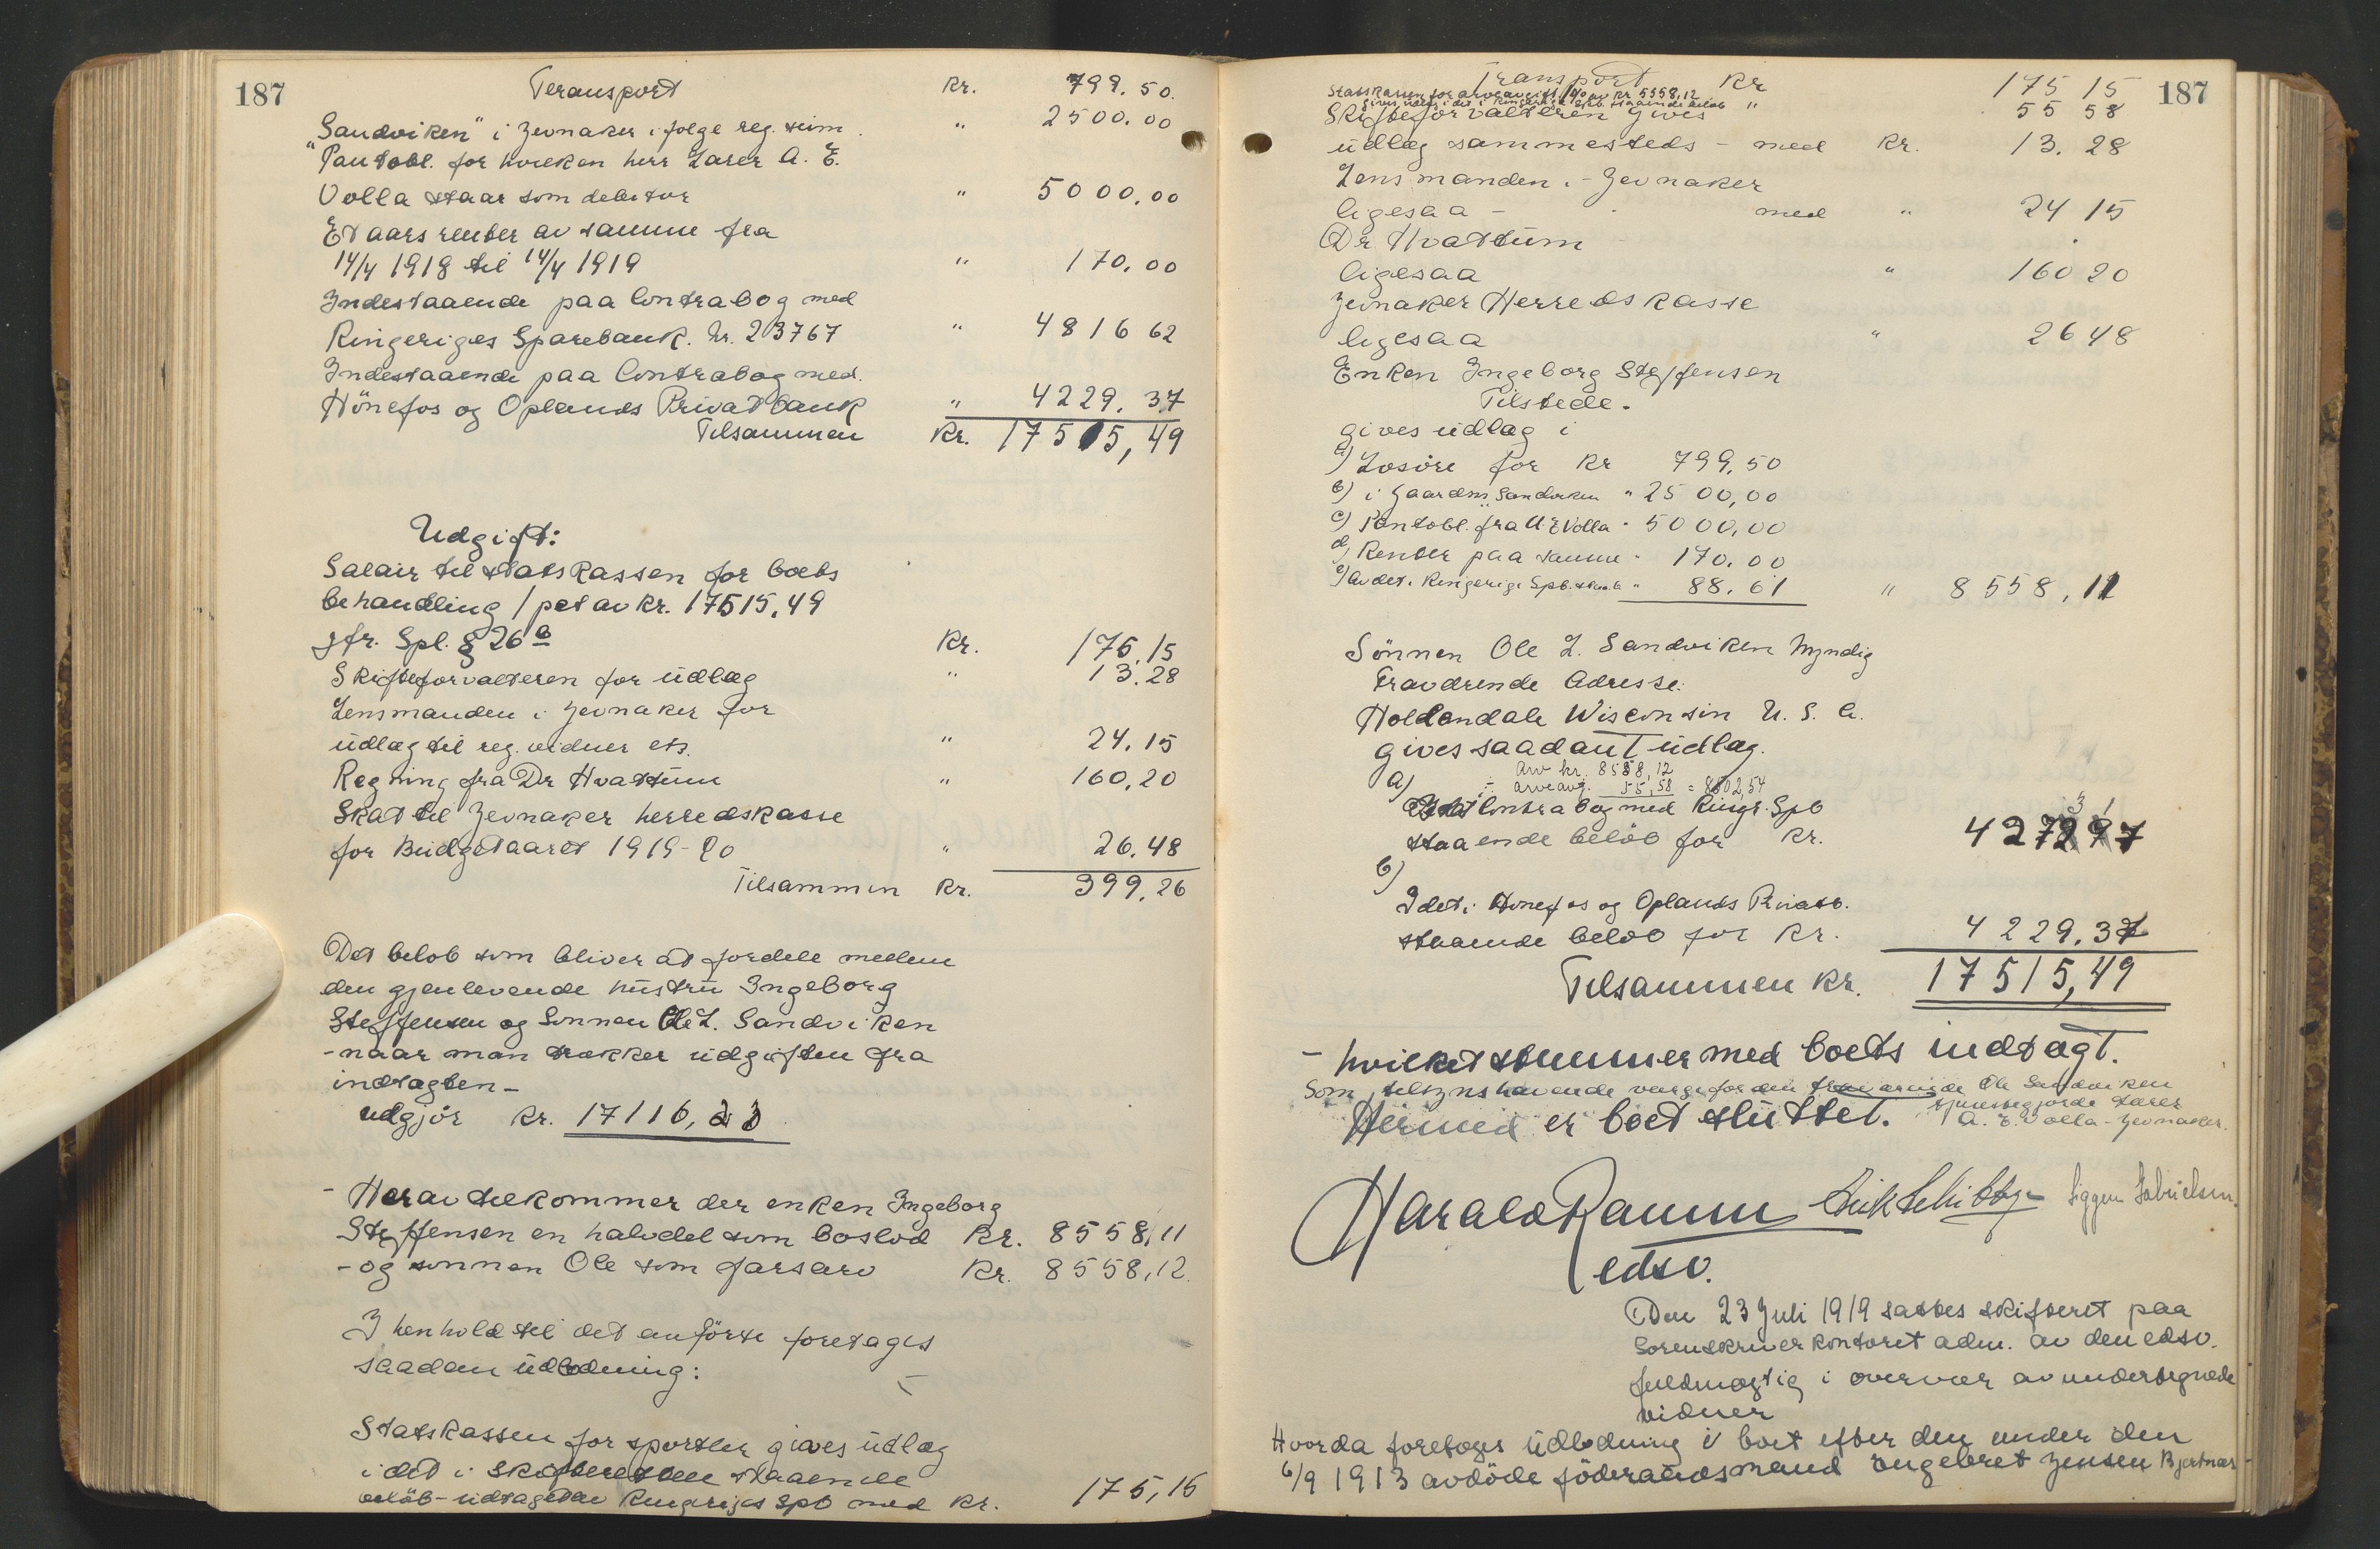 187
Transport Kr. 799.50.
"Sandviken" i Jevnaker ifølge reg. sum " 2500.00
Pantobl. for hvilken herr Lærer A. E.
Volla staar som debitor " 5000,00
Et aars renter av samme fra
14/4 1918 til 14/4 1919 " 170.00
Indestaaende paa Contrabog med
Ringeriges Sparebank. Nr. 23767 " 4816 62
Indestaaende paa Contrabog med.
Hönefos og Oplands Privatbank " 4229.37
Tilsammen Kr. 17515,49
Udgift:
Salair til statskassen for boets
behandling 1 pct av Kr. 17515.49
jfr. Spl. § 26 b Kr. 175,15
Skifteforvalteren for udlæg " 13.28
Lensmanden i Jevnaker for
udlæg til reg. vidner ets. " 24.15
Regning fra Dr Hvattum " 160,20
Skat til Jevnaker herredskasse
for Budgetaaret 1919-20 " 26.48
Tilsammen Kr. 399.26
Det beløb som bliver at fordele mellem
den gjenlevende hustru Ingeborg
Steffensen og Sønnen Ole L. Sandviken
- naar man trækker udgiften fra
indtægten -
udgjør Kr. 17116,23
- Herav tilkommer der enken Ingeborg
Steffensen en halvdel som boslod Kr. 8558,11
- og sønnen Ole som farsarv Kr. 8558,12.
I henhold til det anførte foretages
saadan udlodning:
Statskassen for sportler gives udlæg
i det i skifteretten staaende
beløb - udtaget av Ringeriges Spb med Kr. 175,15
187
Transport Kr 175 15
Statskassen for arveavgift 1% av kr 5558,12
gives udlæg i det i Ringerige Spb. staaende beløb " 55 58
Skifteforvalteren gives
udlæg sammesteds - med Kr. 13.28
Lensmanden i Jevnaker
ligesaa - med " 24 15
Dr Hvattum
ligesaa " 160 20
Jevnaker Herredskasse
ligesaa " 26 48
Enken Ingeborg Steffensen
Tilstede.
gives udlæg i
a) Losöre for Kr 799.50
b) i Gaarden Sandviken " 2500,00
c) Pantobl. fra A. E. Volla " 5000,00
d) Renter paa samme " 170.00
e) av det i Ringerige Spb. staae. b " 88.61 " 8558,11
Sönnen Ole L. Sandviken Myndig
Fraværende Adresse:
Holdendale Wisconsin U. S. A.
gives saadant udlæg.
a) Arv kr. 8558,12
÷ arveavg. 55,58 = 8502,54
I det Contrabog med Ringr. Spb
staaende beløb for Kr. 427297
3 1
b)
I det i Hönefos og Oplands Privatb.
staaende beløb for Kr. 4229.37
Tilsammen Kr. 17515,49
- hvilket stemmer med boets indtægt.
Som tilsynshavende verge for den fraværende Ole Sandviken
tjenestegjorde Lærer
A. E. Volla - Jevnaker.
Hermed er boet sluttet.
Harald Ramm Erik Schibbye Siggen Gabrielsen.
edsv.
Den 23 Juli 1919 sattes skifteret paa
Sorenskriverkontoret adm. av den edsv.
fuldmægtig i overvær av undertegnede
vidner
Hvorda foretoges udlodning i boet efter den under den
6/9 1913 avdöde föderaadsmand Engebret Jensen Bjertnæs-